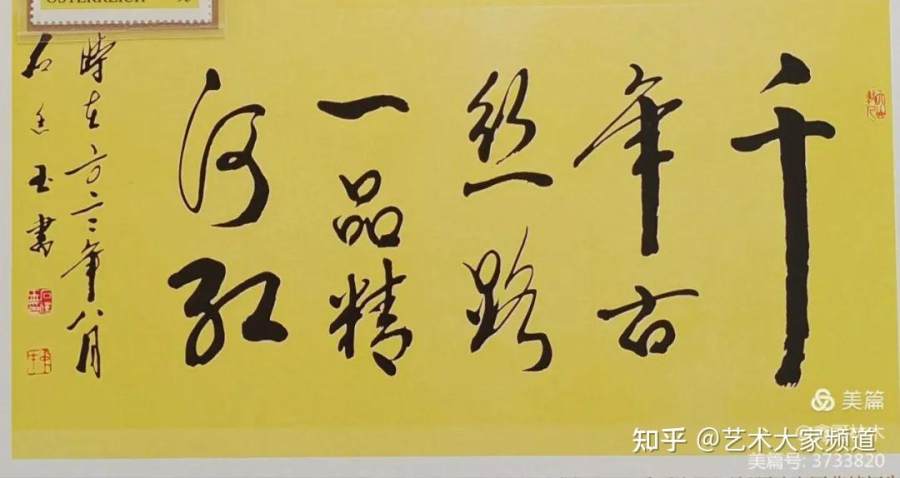 ÖSTERREICH
千
年古
丝路
一品精
河红
時在二〇二二年八月
石玉書
美篇
知乎 @艺术大家频道
美篇号: 3733820